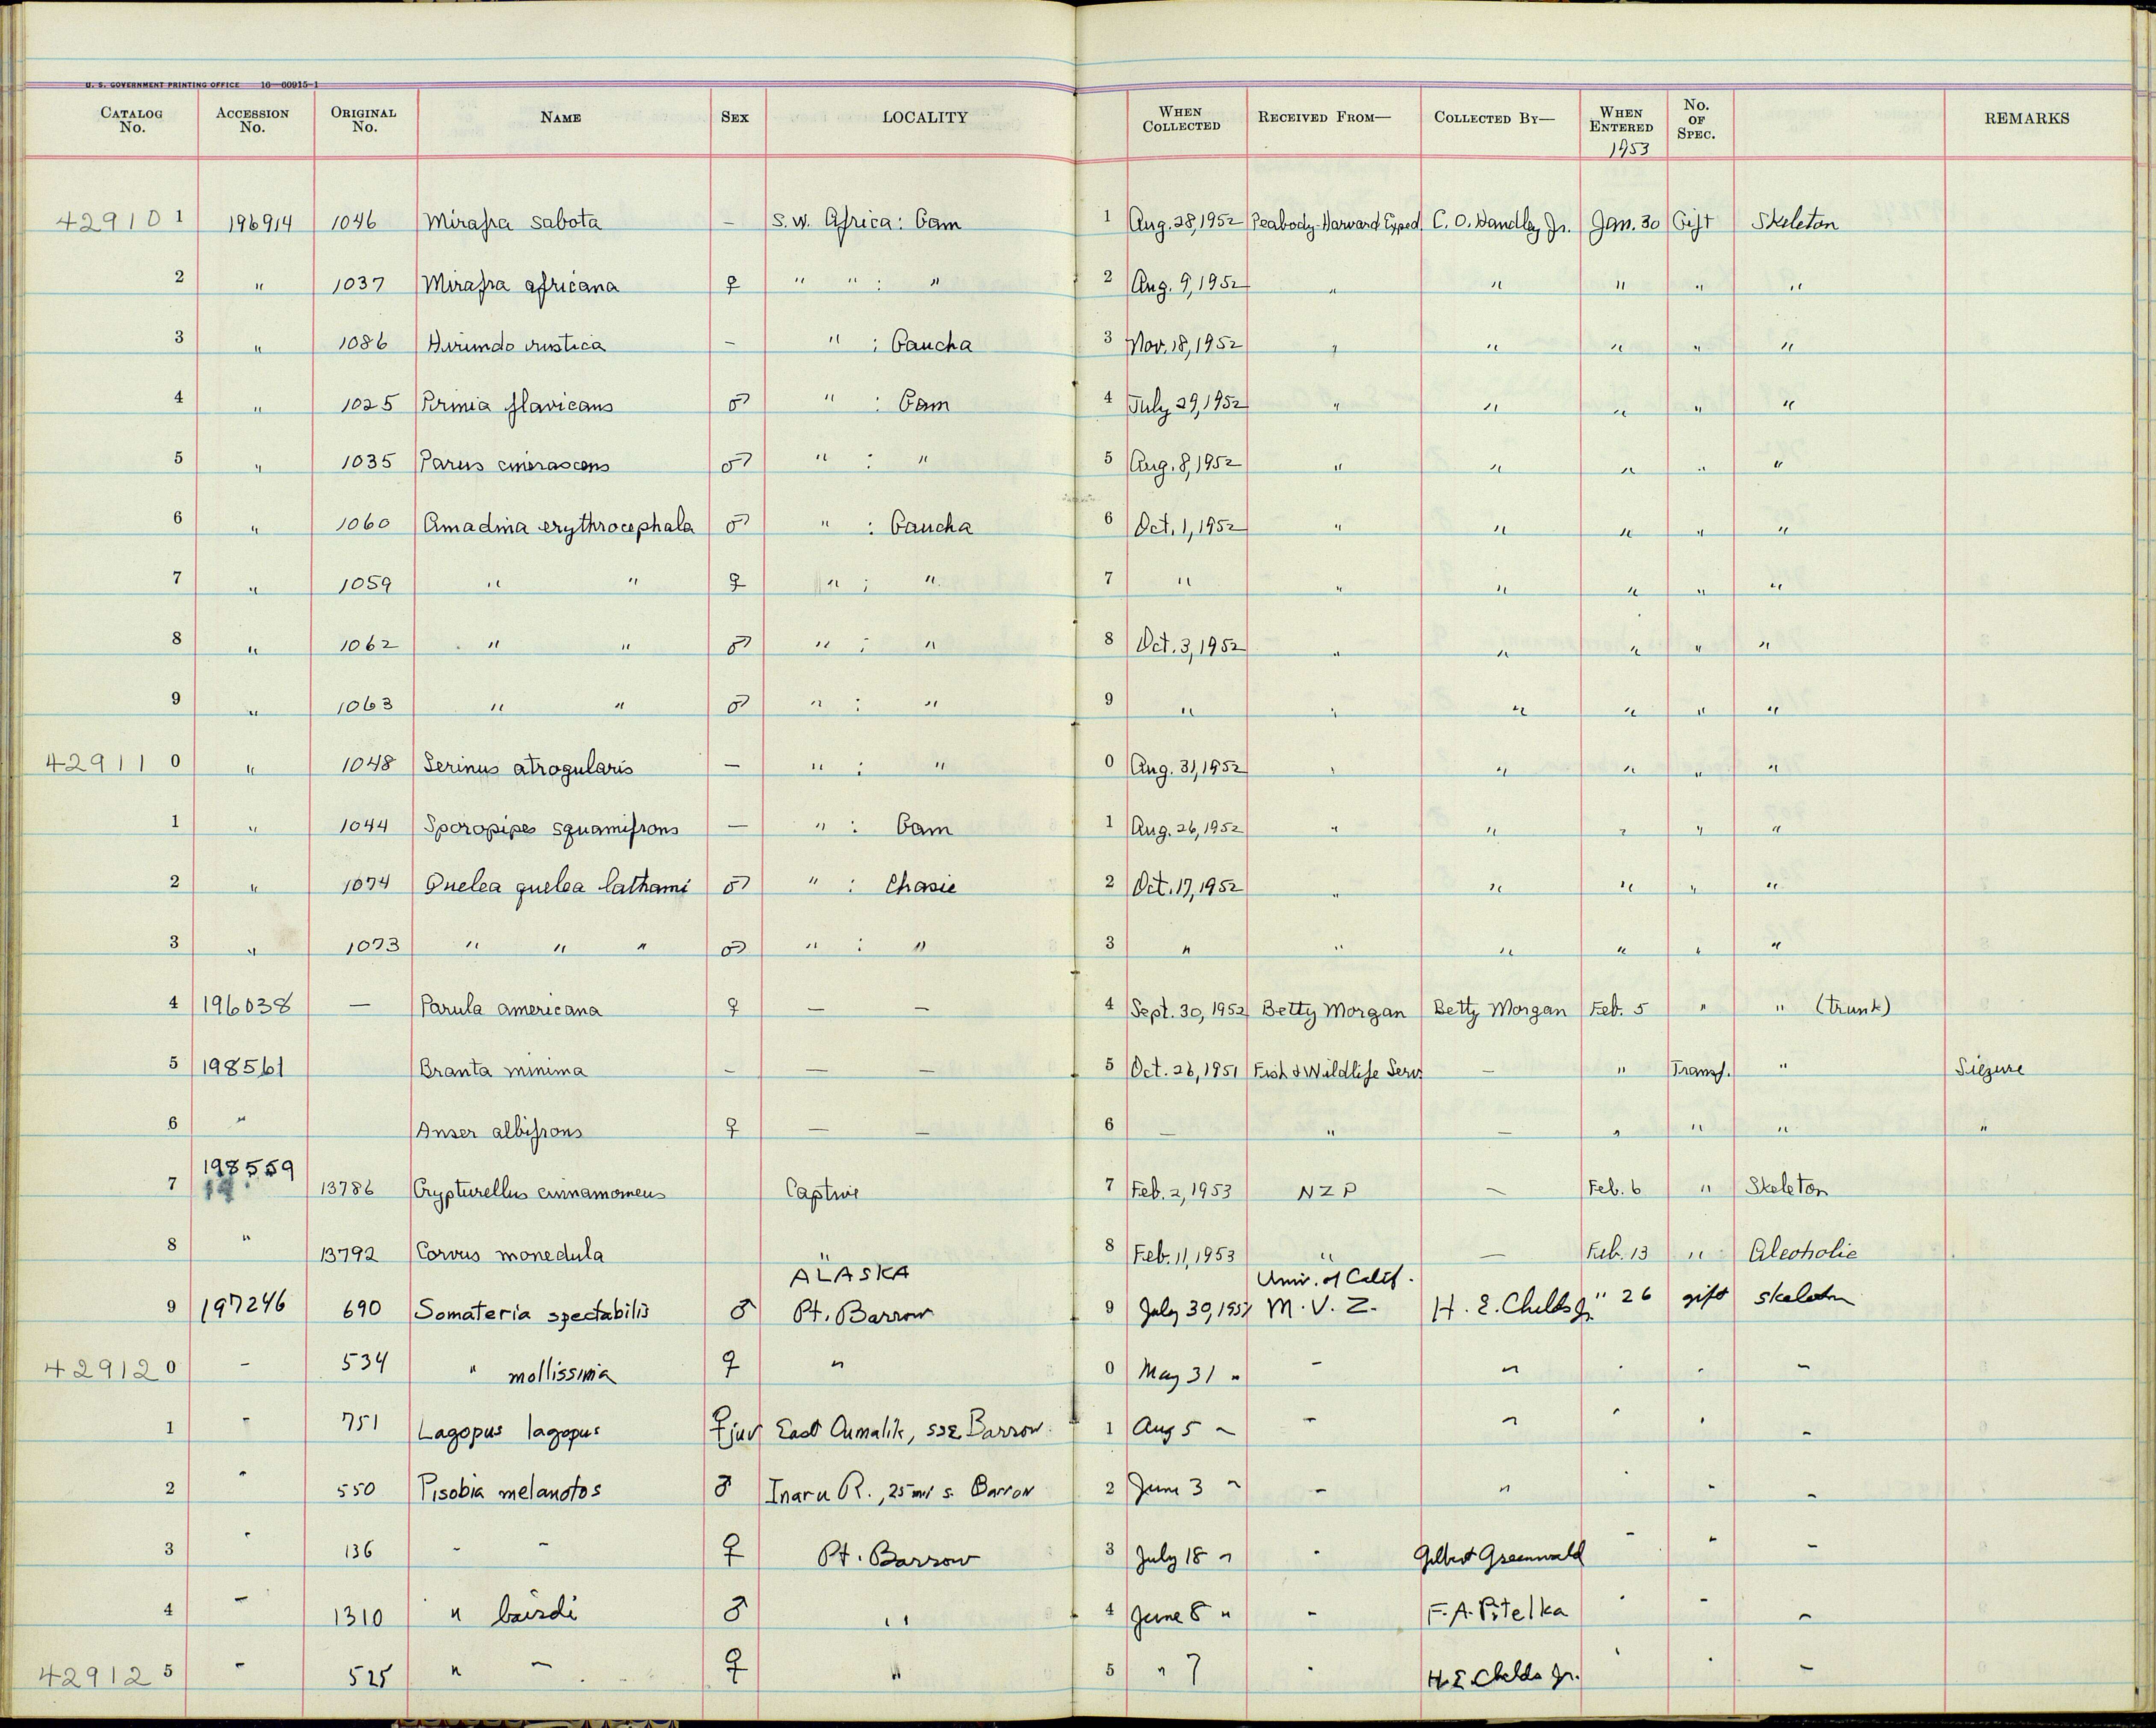 U. S. GOVERNMENT PRINTING OFFICE 16—60915-1
CATALOG No. ACCESSION No. ORIGINAL No. NAME SEX LOCALITY WHEN COLLECTED RECEIVED FROM— COLLECTED BY— WHEN ENTERED 1953 No. OF SPEC. REMARKS
42910 1 196914 1046 Mirafra sabota — S.W. Africa: Gam 1 Aug. 28, 1952 Peabody-Harvard Exped C. O. Handley Jr. Jan. 30 Gift Skeleton
2 " 1037 Mirafra africana ♀ " " : " 2 Aug. 9, 1952 " " " " "
3 " 1086 Hirundo rustica — " : Gaucha 3 Nov. 18, 1952 " " " " "
4 " 1025 Prinia flavicans ♂ " : Gam 4 July 29, 1952 " " " " "
5 " 1035 Parus cinerascens ♂ " : " 5 Aug. 8, 1952 " " " " "
6 " 1060 Amadina erythrocephala ♂ " : Gaucha 6 Oct. 1, 1952 " " " " "
7 " 1059 " " ♀ " : " 7 " " " " " "
8 " 1062 " " ♂ " : " 8 Oct. 3, 1952 " " " " "
9 " 1063 " " ♂ " : " 9 " " " " " "
42911 0 " 1048 Serinus atrogularis — " : " 0 Aug. 31, 1952 " " " " "
1 " 1044 Sporopipes squamifrons — " : Gam 1 Aug. 26, 1952 " " " " "
2 " 1074 Quelea quelea lathami ♂ " : Chasie 2 Oct. 17, 1952 " " " " "
3 " 1073 " " " ♂ " : " 3 " " " " " "
4 196038 — Parula americana ♀ — — 4 Sept. 30, 1952 Betty Morgan Betty Morgan Feb. 5 " " (trunk)
5 198561 Branta minima — — — 5 Oct. 26, 1951 Fish & Wildlife Serv. — " Transf. " Siezure
6 " Anser albifrons ♀ — — 6 — " — " " " "
7 198559 13786 Crypturellus cinnamomeus Captive 7 Feb. 2, 1953 NZP — Feb. 6 " Skeleton
8 " 13792 Corvus monedula " 8 Feb. 11, 1953 " — Feb. 13 " Alcoholic
9 197246 690 Somateria spectabilis ♂ ALASKA Pt. Barrow 9 July 30, 1952 Univ. of Calif. M.V.Z. H. E. Childs Jr. " 26 gift skeleton
42912 0 " 534 " mollissima ♀ " 0 May 31 " " " " " "
1 " 751 Lagopus lagopus ♀ juv East Oumalik, SSE Barrow 1 Aug 5 " " " " " "
2 " 550 Pisobia melanotos ♂ Inaru R., 25 mi S. Barrow 2 June 3 " " " " " "
3 " 136 " " ♀ Pt. Barrow 3 July 18 " " Gilbert Greenwald " " "
4 " 1310 " bairdi ♂ " 4 June 8 " " F. A. Pitelka " " "
42912 5 " 525 " " ♀ " 5 " 7 " H. E. Childs Jr. " " "